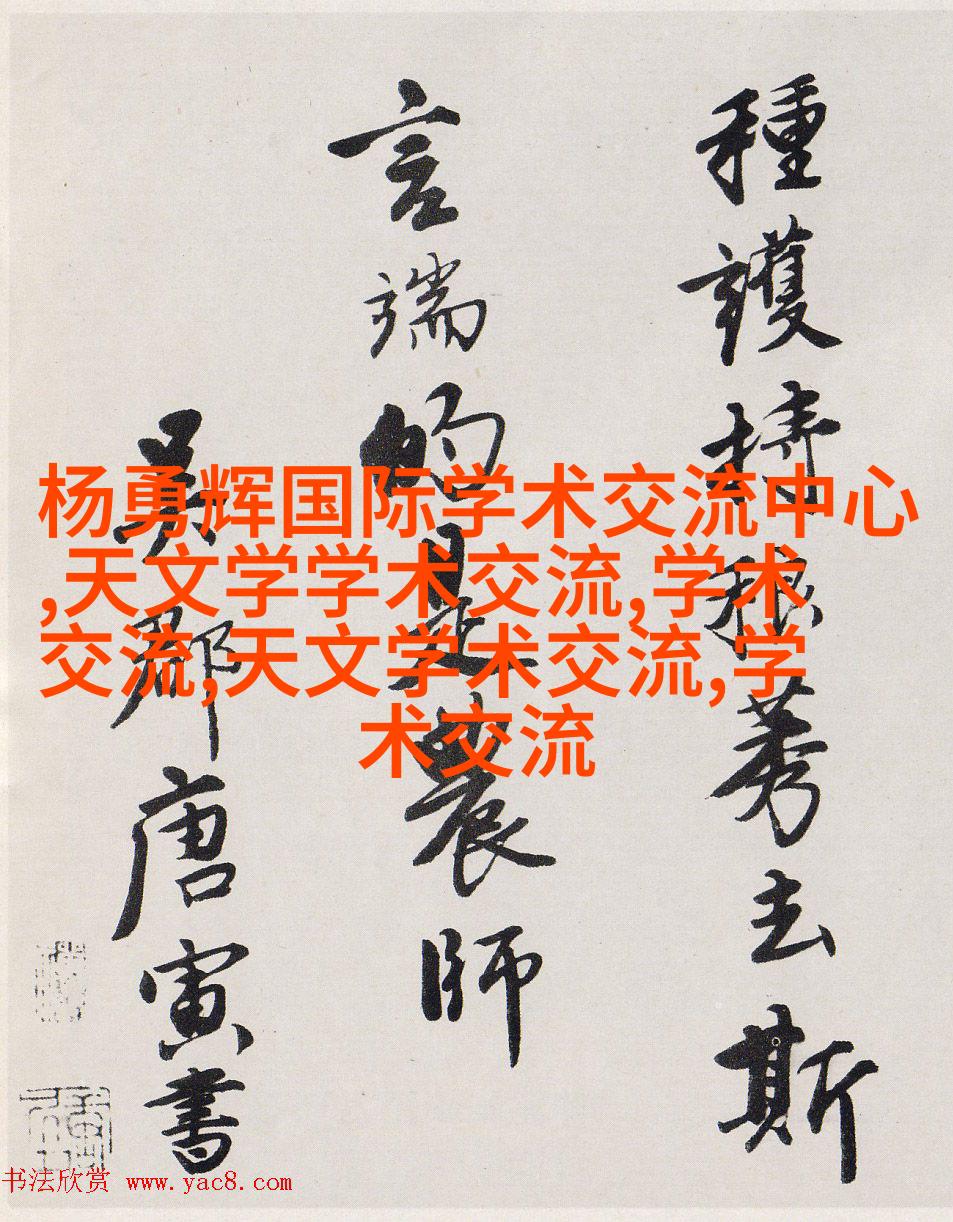 種護持稂莠去斯
言端的是農師
吳郡唐寅書
杨勇辉国际学术交流中心
,天文学学术交流,学术
交流,天文学术交流,学
术交流
书法欣赏 www.yac8.com